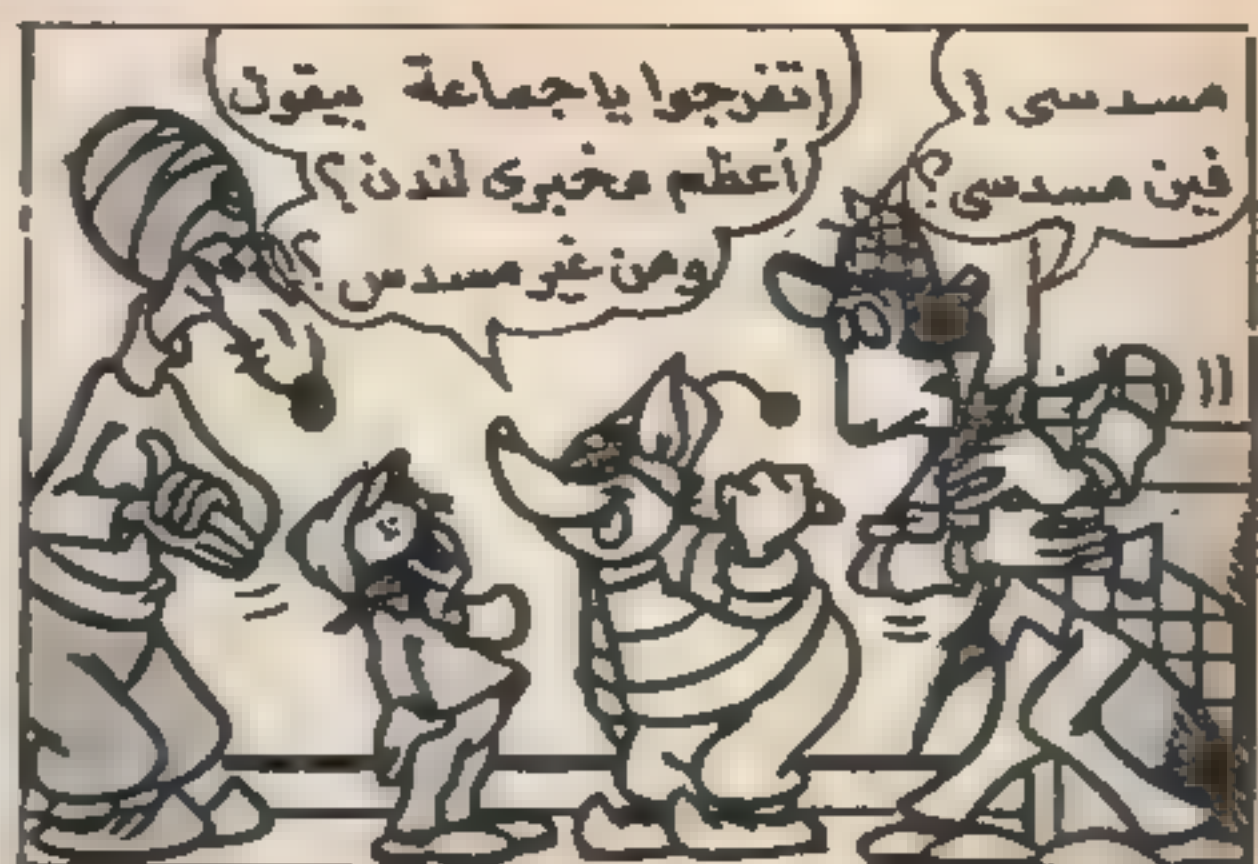 مسدسى !
فين مسدسى ؟
إتفرجوا ياجماعة بيقول
أعظم مخبرى لندن ؟
ومن غير مسدس ؟